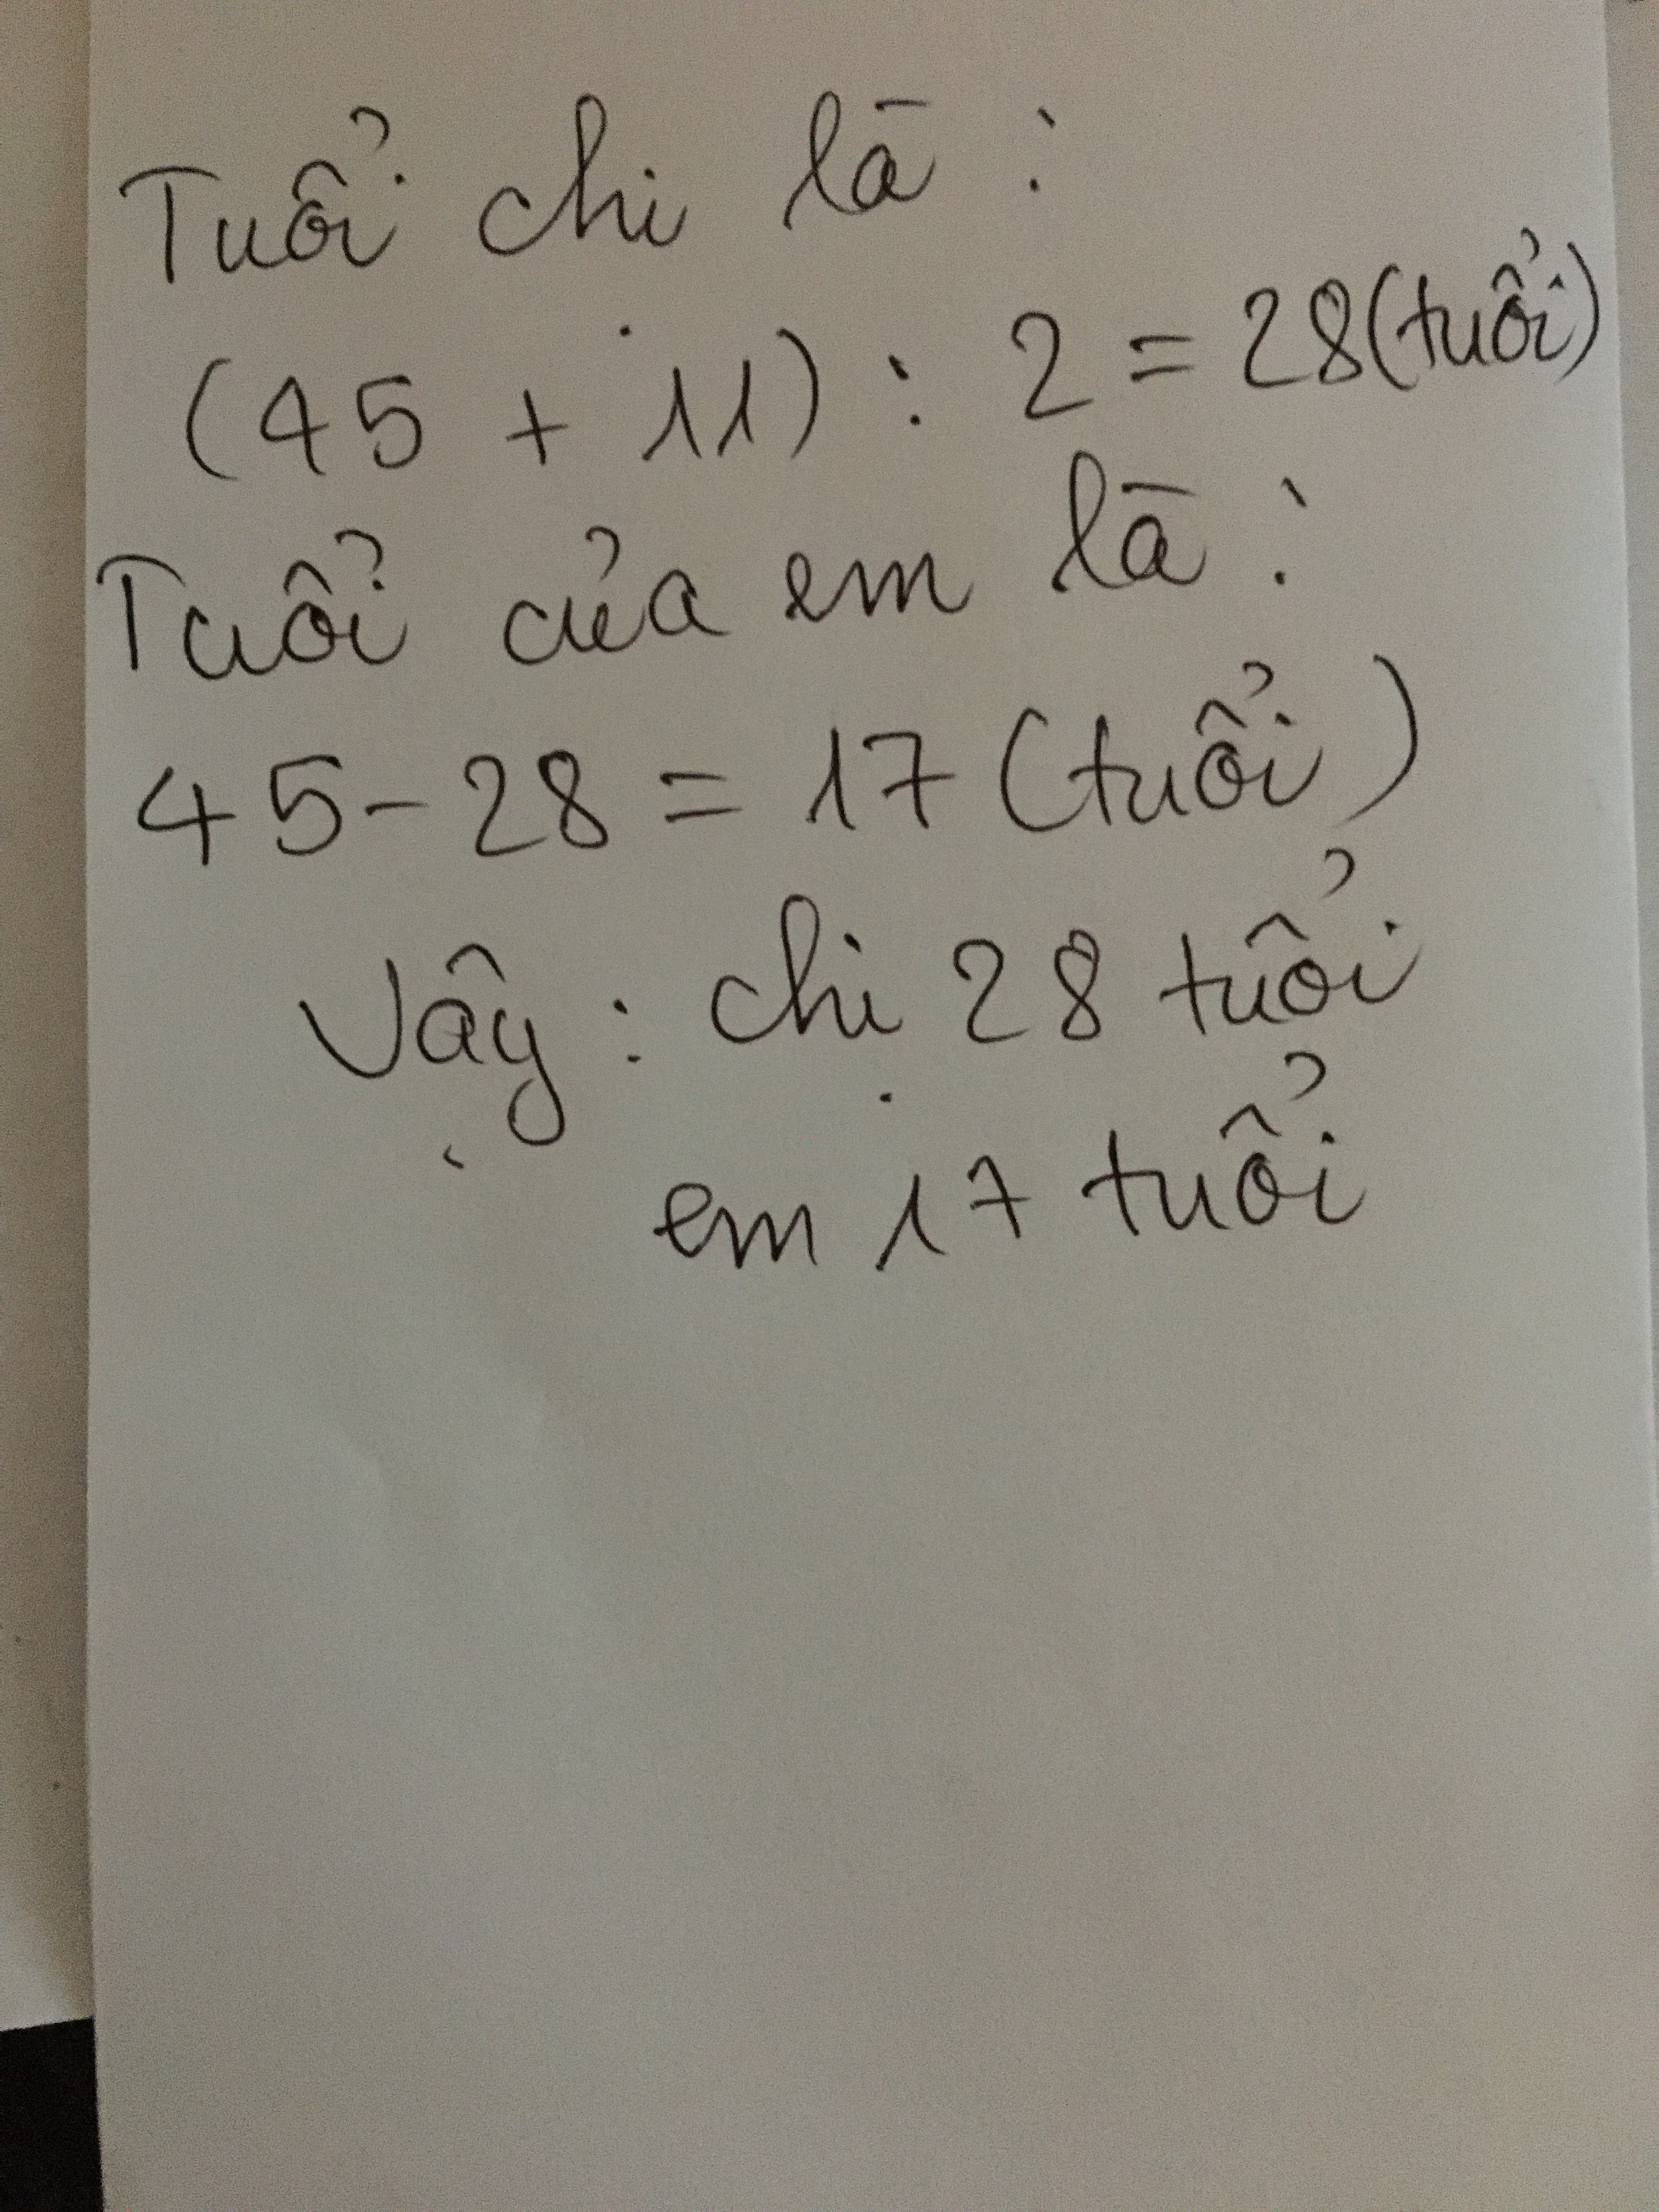 Tuổi chị là :
(45 + 11) : 2 = 28 (tuổi)
Tuổi của em là :
45 - 28 = 17 (tuổi)
Vậy : chị 28 tuổi
em 17 tuổi